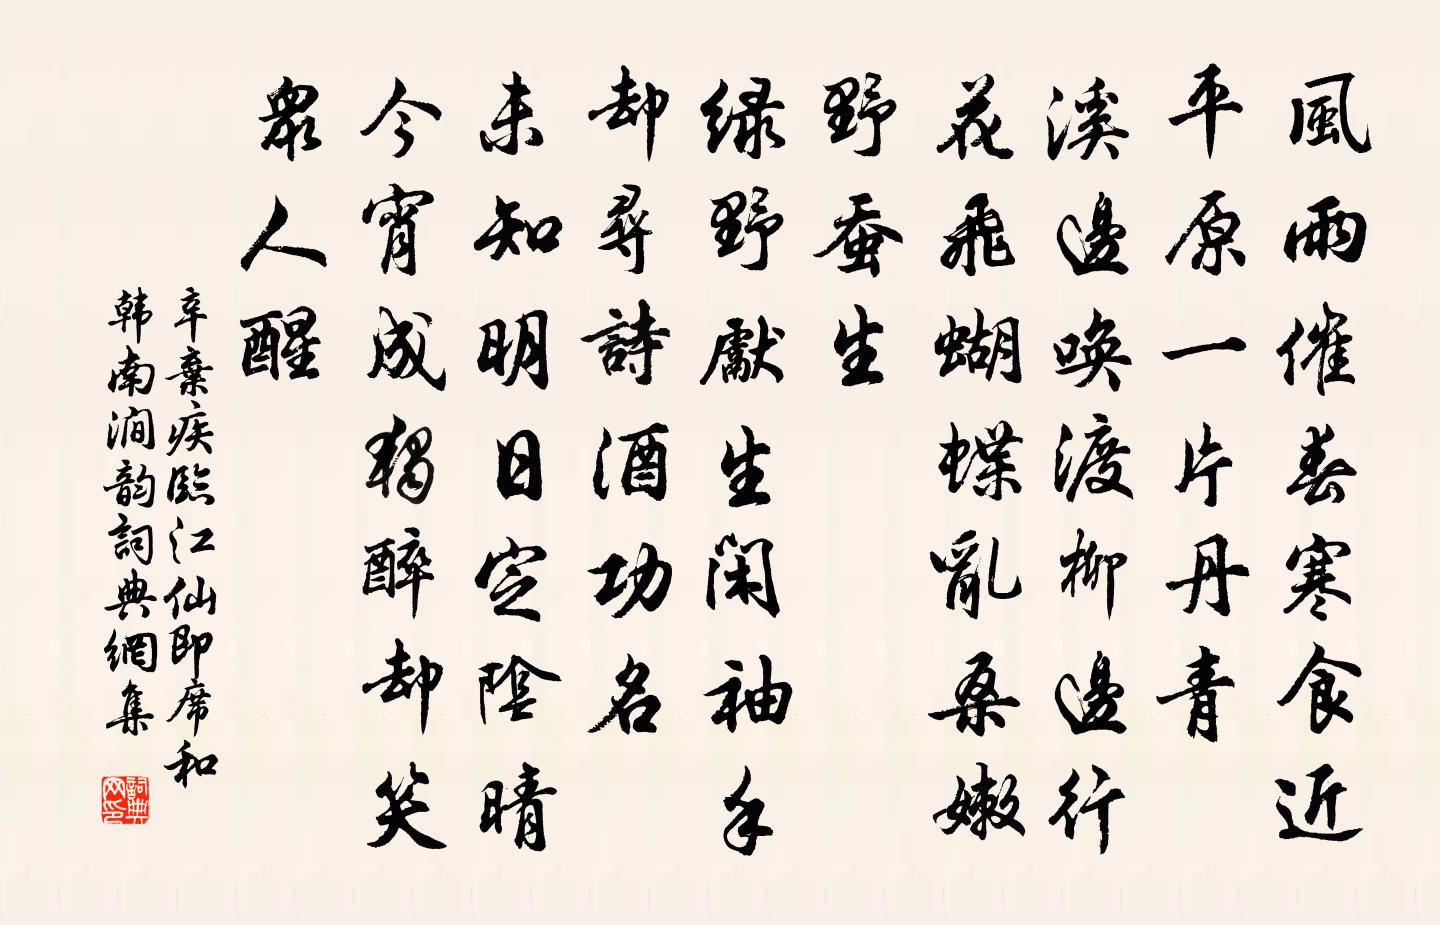 風雨催春寒食近
平原一片丹青
溪邊喚渡柳邊行
花飛蝴蝶亂桑嫩
野蚕生
绿野獻生閑袖手
却尋詩酒功名
未知明日定陰晴
今宵成獨醉却笑
眾人醒
辛棄疾臨江仙即席和
韩南澗韵詞典網集
詞典
网印